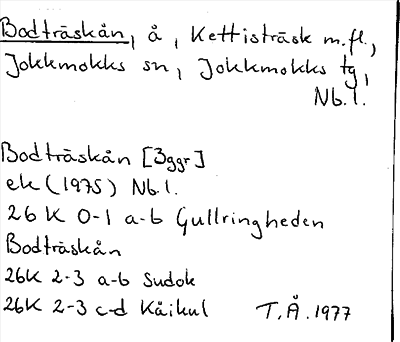 Bodträskån, å, Kettisträsk m.fl.,
Jokkmokks sn, Jokkmokks tg,
Nb.l.
Bodträskån [3ggr]
ek (1975) Nb.l.
26 K 0-1 a-b Gullringheden
Bodträskån
26K 2-3 a-b Sudok
26K 2-3 c-d Kåikul T.Å. 1977